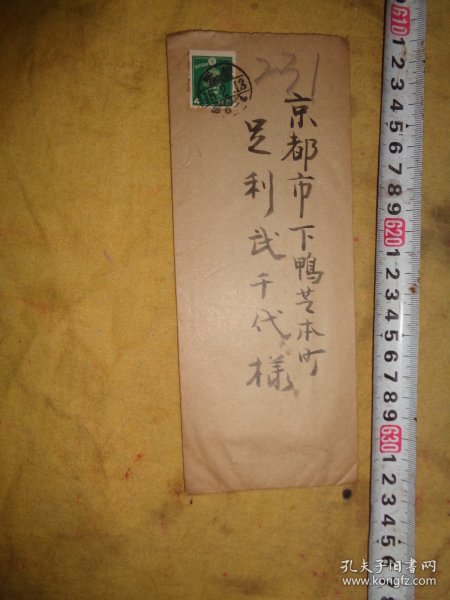 京都市下鴨芝本町
足利武千代様
231
610
1 2 3 4 5 6 7 8 9 620 1 2 3 4 5 6 7 8 9 630 1 2 3 4 5 6
孔夫子旧书网
www.kongfz.com